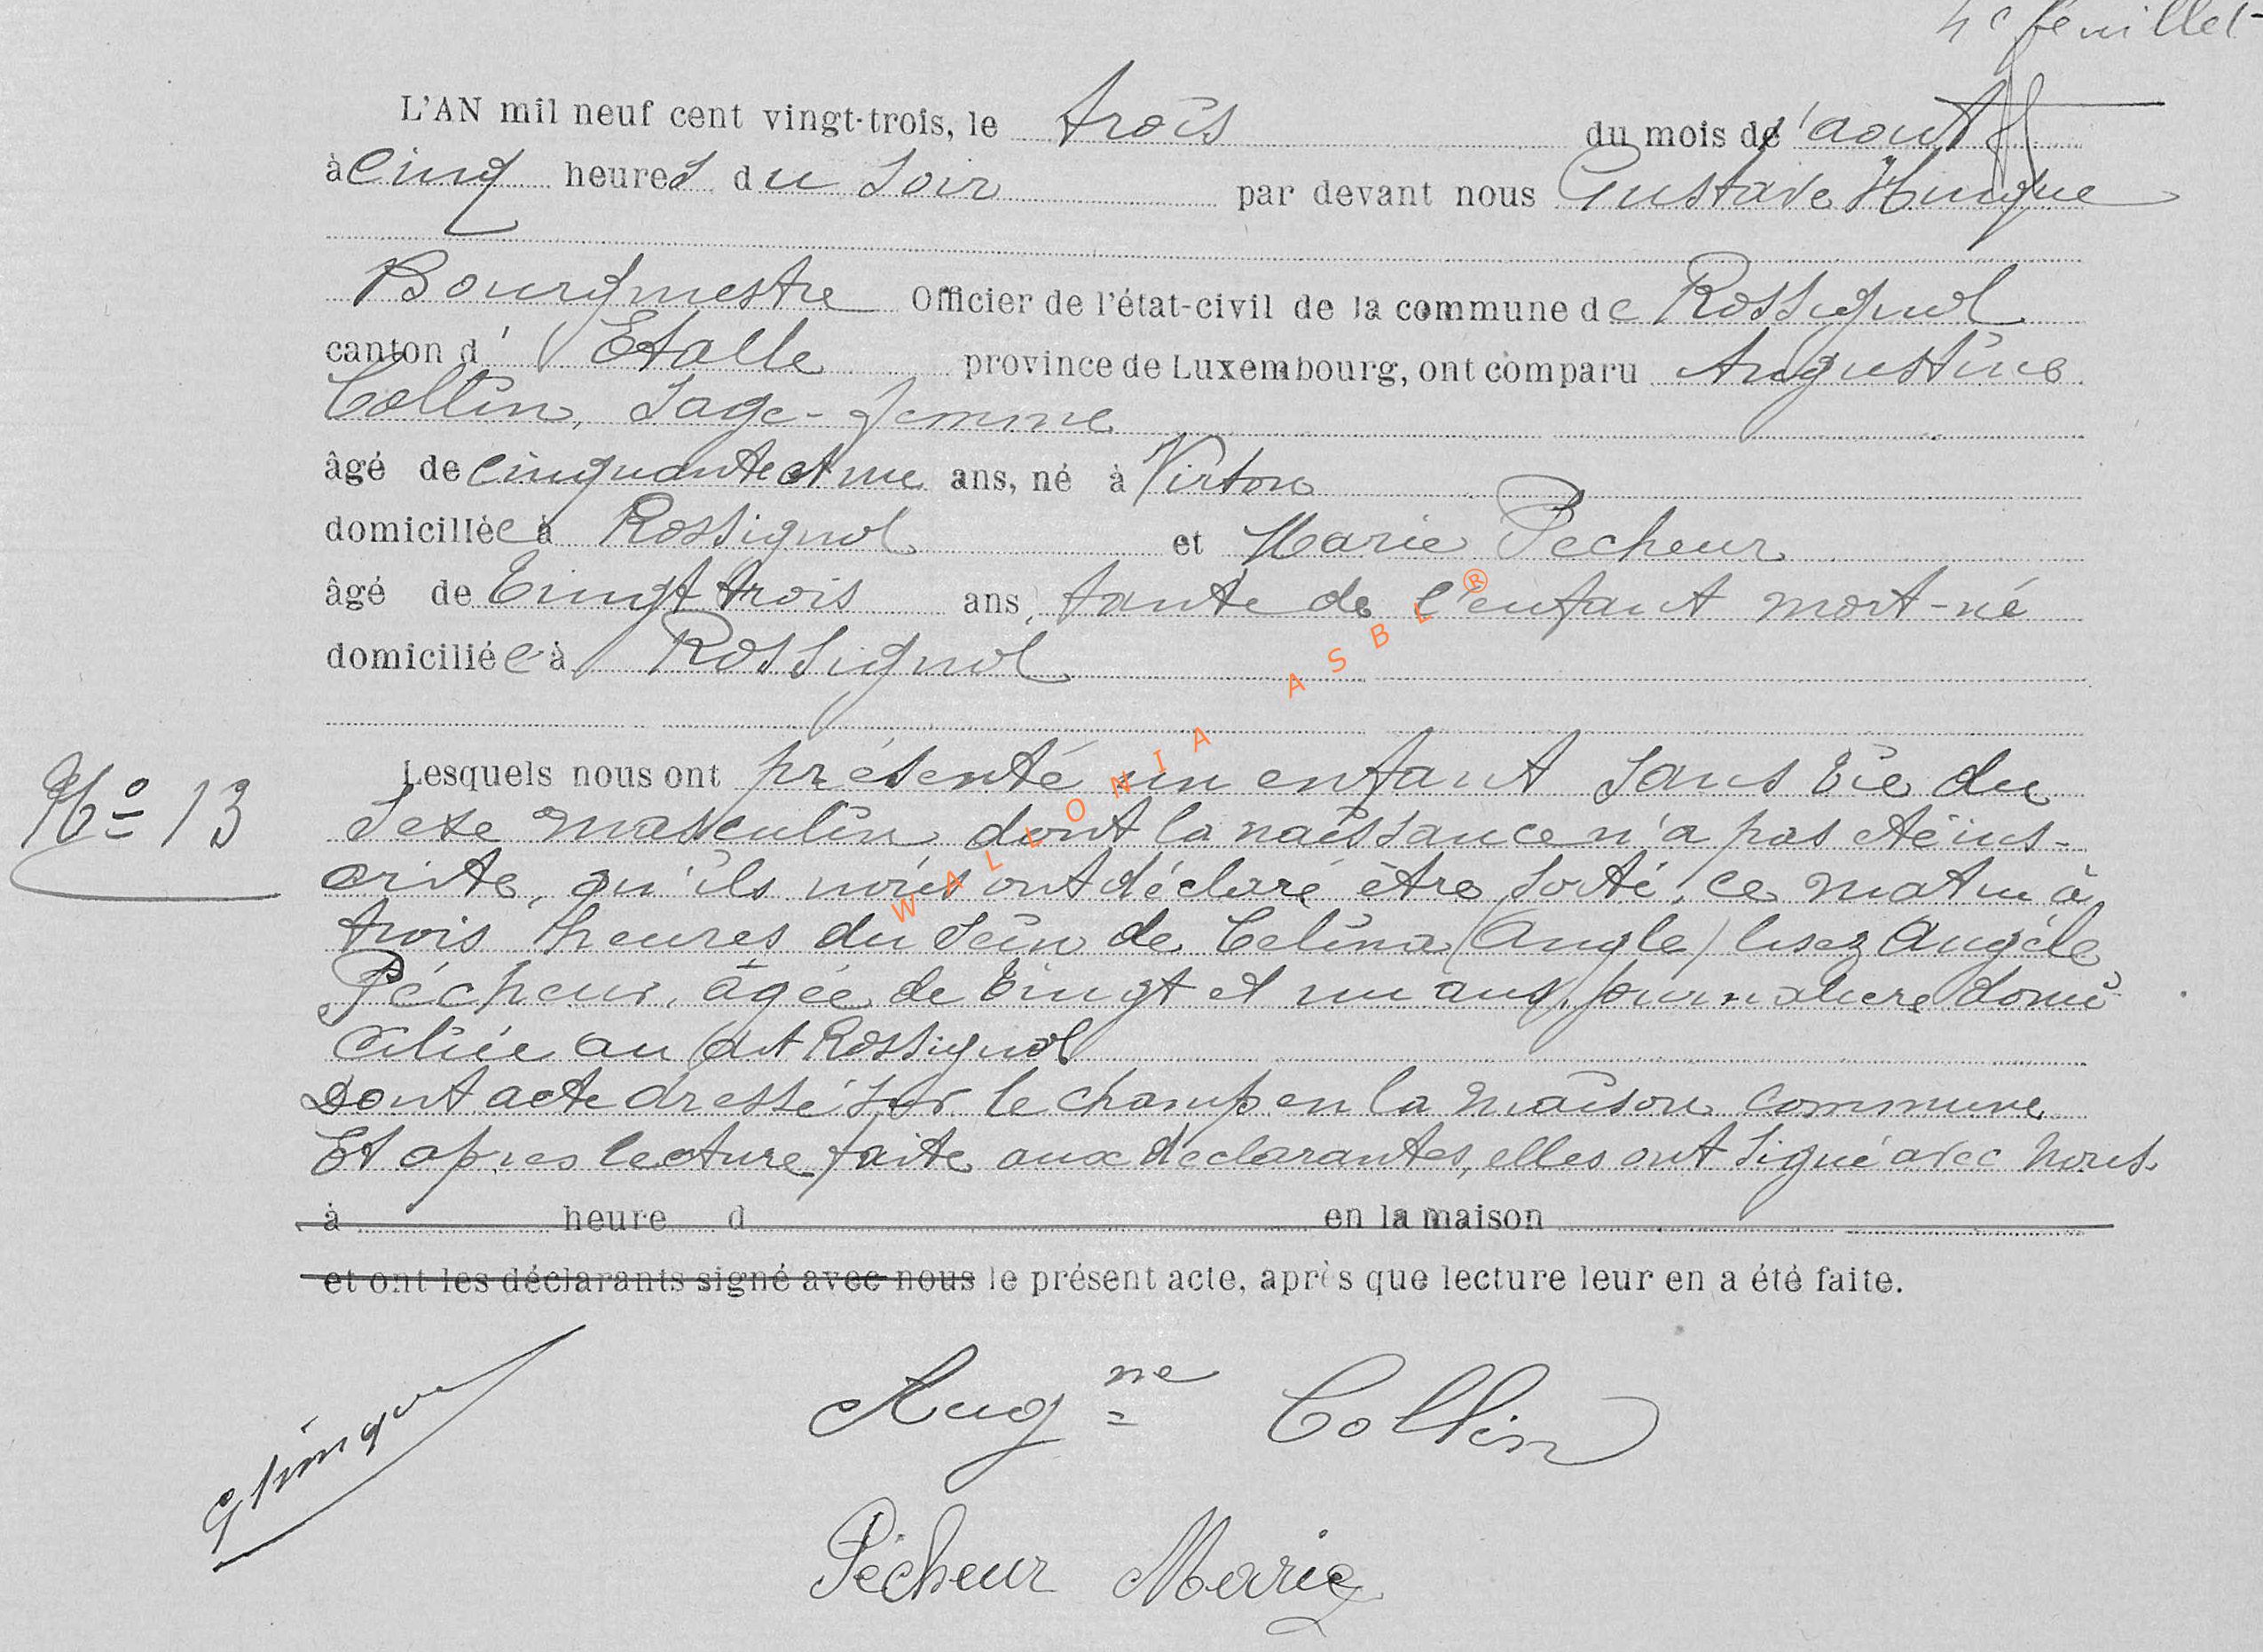 4e feuillet
L'AN mil neuf cent vingt-trois, le trois du mois d'aout
à cinq heures du soir par devant nous Gustave Hinque
Bourgmestre Officier de l'état-civil de la commune de Rossignol
canton d' Etalle province de Luxembourg, ont comparu Augustine
Collin, sage-femme
âgé de cinquante et une ans, né à Virton
domiciliée à Rossignol et Marie Pecheur
âgé de vingt trois ans, tante de l'enfant mort-né
domiciliée à Rossignol
Lesquels nous ont présenté un enfant sans vie du
No 13 sexe masculin dont la naissance n'a pas été ins-
crite, qu'ils nous ont déclaré être sorti, ce matin à
trois heures du sein de Celina (Angle) lisez Angèle
Pécheur, âgée de vingt et un ans, journalière domi-
ciliée au dit Rossignol
Dont acte dressé sur le champ en la maison commune
Et apres lecture faite aux declarantes, elles ont signé avec nous
à heure d en la maison
et ont les déclarants signé avec nous le présent acte, après que lecture leur en a été faite.
GHinque
Augne Collin
Pécheur Marie
WALLONIA ASBL ®